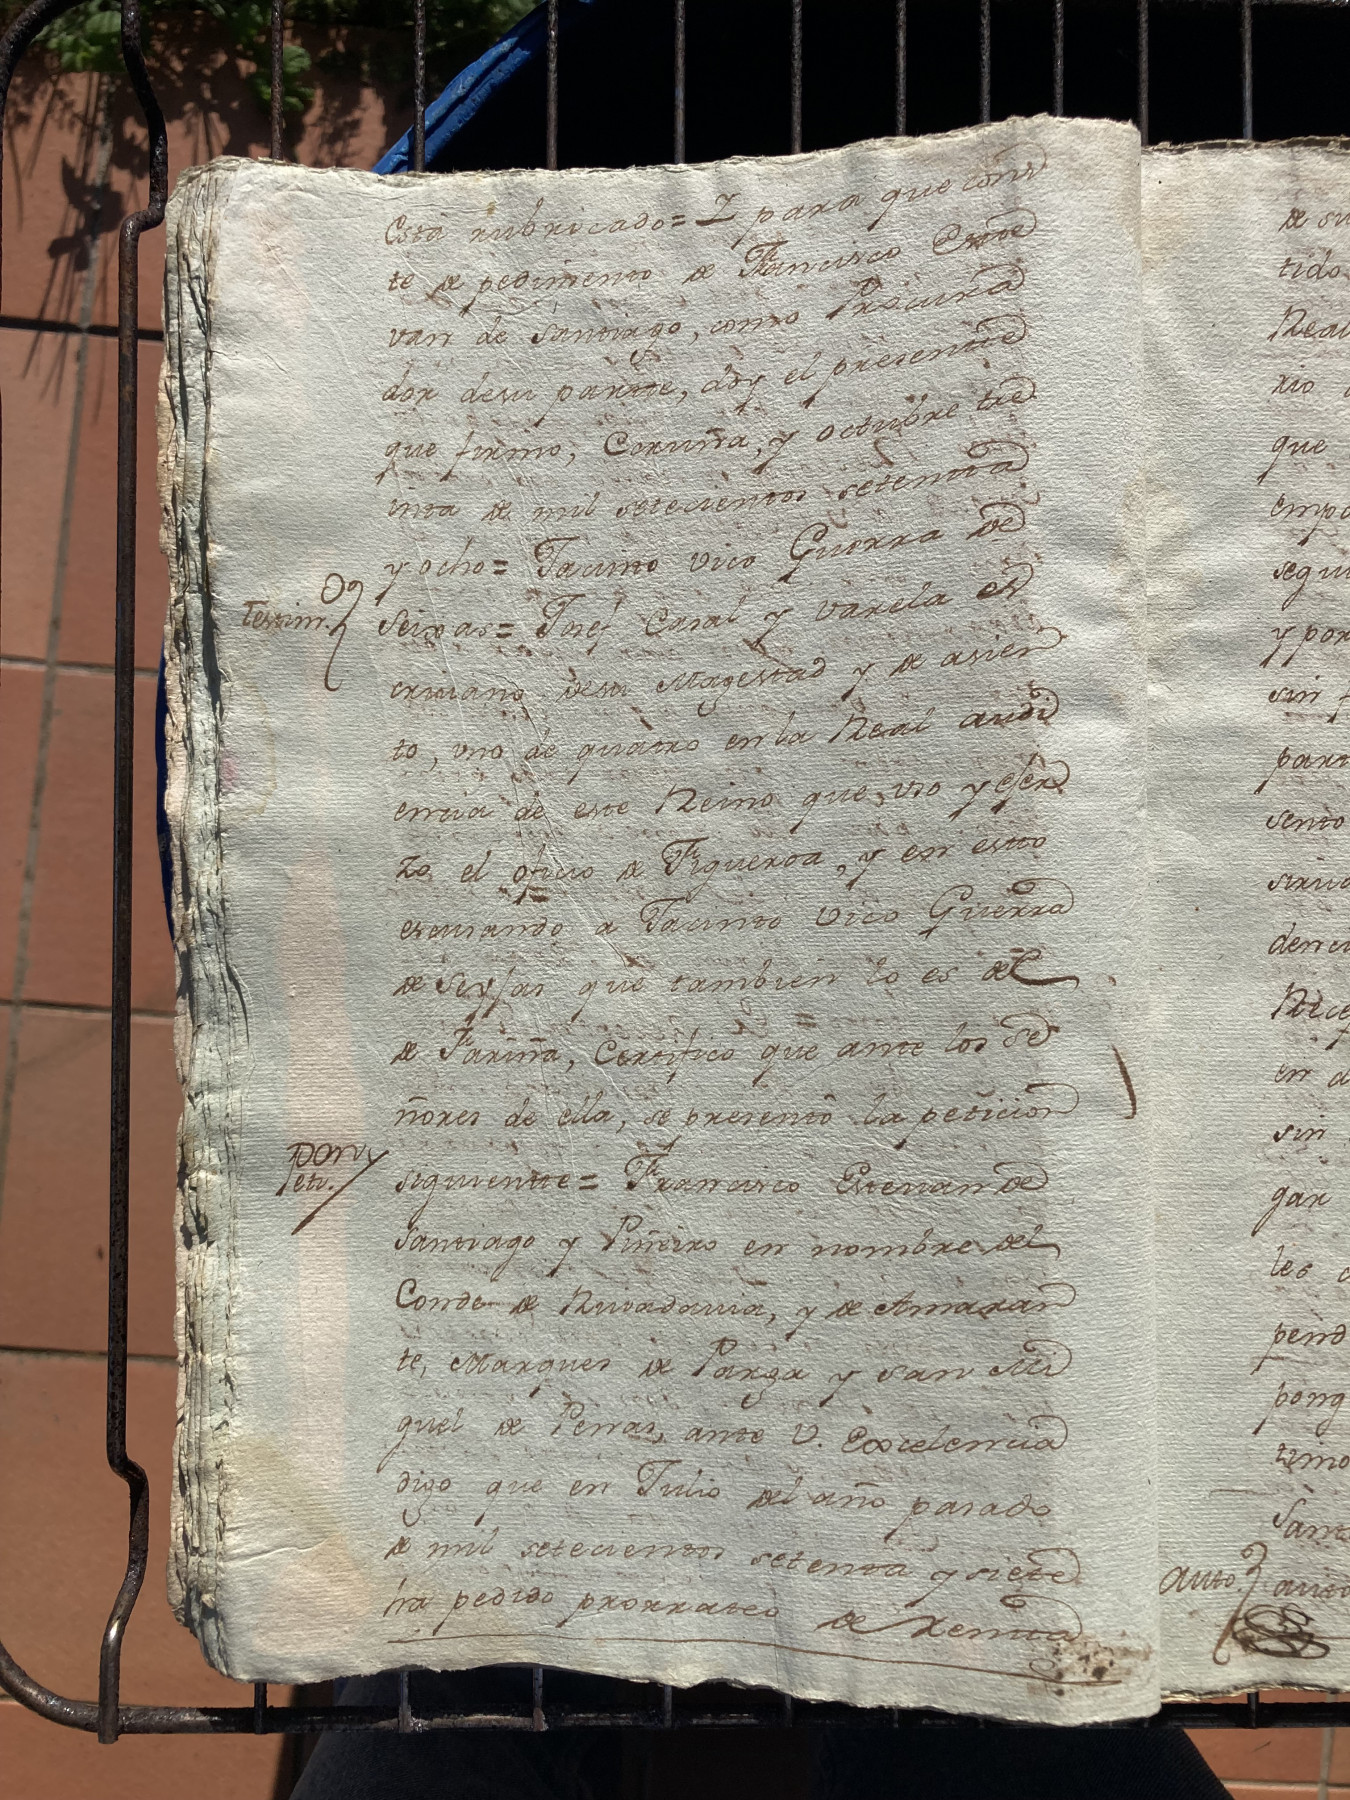 Està rubricado = I para que cons
te de pedimento de Francisco Este
van de Santiago, como Procura
dor desu partte, doy el presentte
que firmo, Coruña, y octubre tre
inta de mil setecientos setentta
y ocho = Jacinto Vico Guerra de
Seixas = Josef Casal y Varela es
Testim.º
crivano desu Magestad y de asien
to, uno de quatro en la Real audi
encia de este Reino que, vso y exer
zo el oficio de Figueroa, y en estto
escusando a Jacinto Vico Guerra
de Seyjas que tambien lo es del
de Fariña, Certifico que ante los Se
ñores de ella, se presentò la peticion
siguientte = Francisco Estevan de
Santiago y Piñeiro en nombre del
Conde de Rivadavia, y de Amaran
te, Marques de Parga y san Mi
guel de Penas, ante V. Excelencia
digo que en Julio del año pasado
de mil setecientos setenta y siete
ha pedido prorrateo de Rentta
de su
tido
Real
rio
que
seguí
y por
sin
part
sento
denci
en d
sin
gar
les
pend
pong
timo
Sant
auto